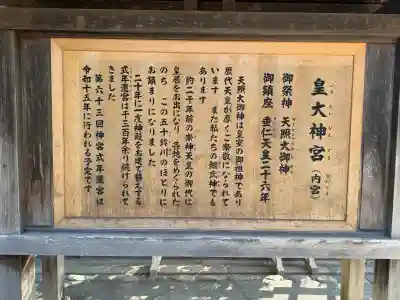 皇大神宮（内宮）
御祭神 天照大御神
御鎮座 垂仁天皇二十六年
天照大御神は皇室の御祖神であり
歴代天皇が厚くご崇敬になられて
います また私たちの総氏神でも
あります
約二千年前の崇神天皇の御代に
皇居をお出になり 各地をめぐられた
のち この五十鈴川のほとりに
お鎮まりになりました
二十年に一度神殿をお建て替えする
式年遷宮は千三百年余り続けられて
きました
第六十三回神宮式年遷宮は
令和十五年に行われる予定です